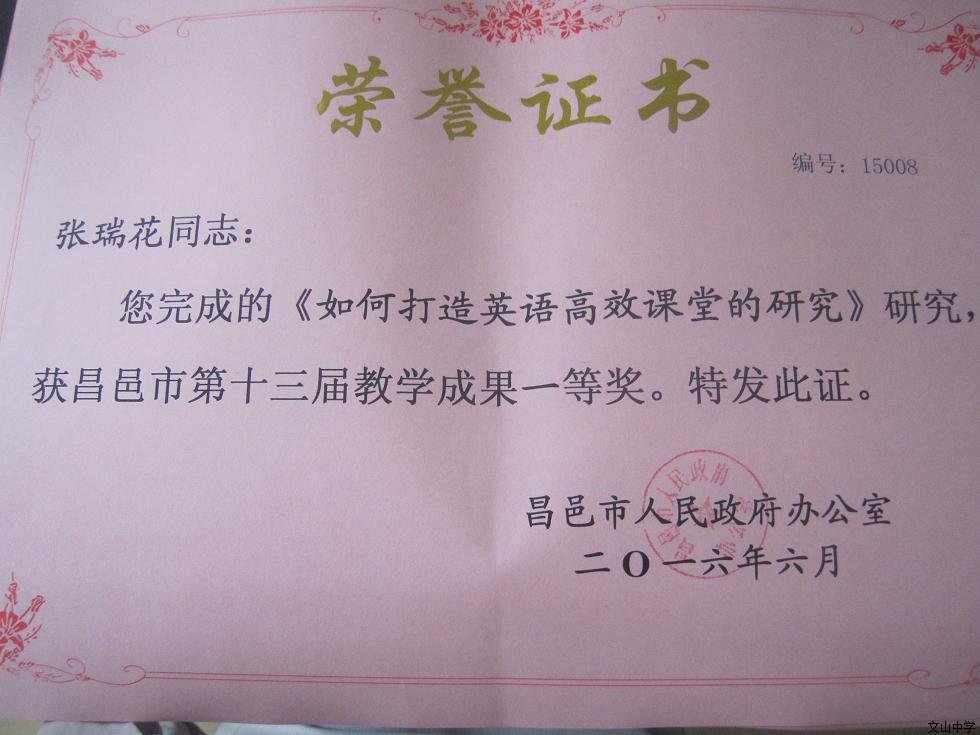 荣誉证书
编号：15008
张瑞花同志：
您完成的《如何打造英语高效课堂的研究》研究，
获昌邑市第十三届教学成果一等奖。特发此证。
昌邑市人民政府办公室
二〇一六年六月
昌邑市人民政府办公室
文山中学